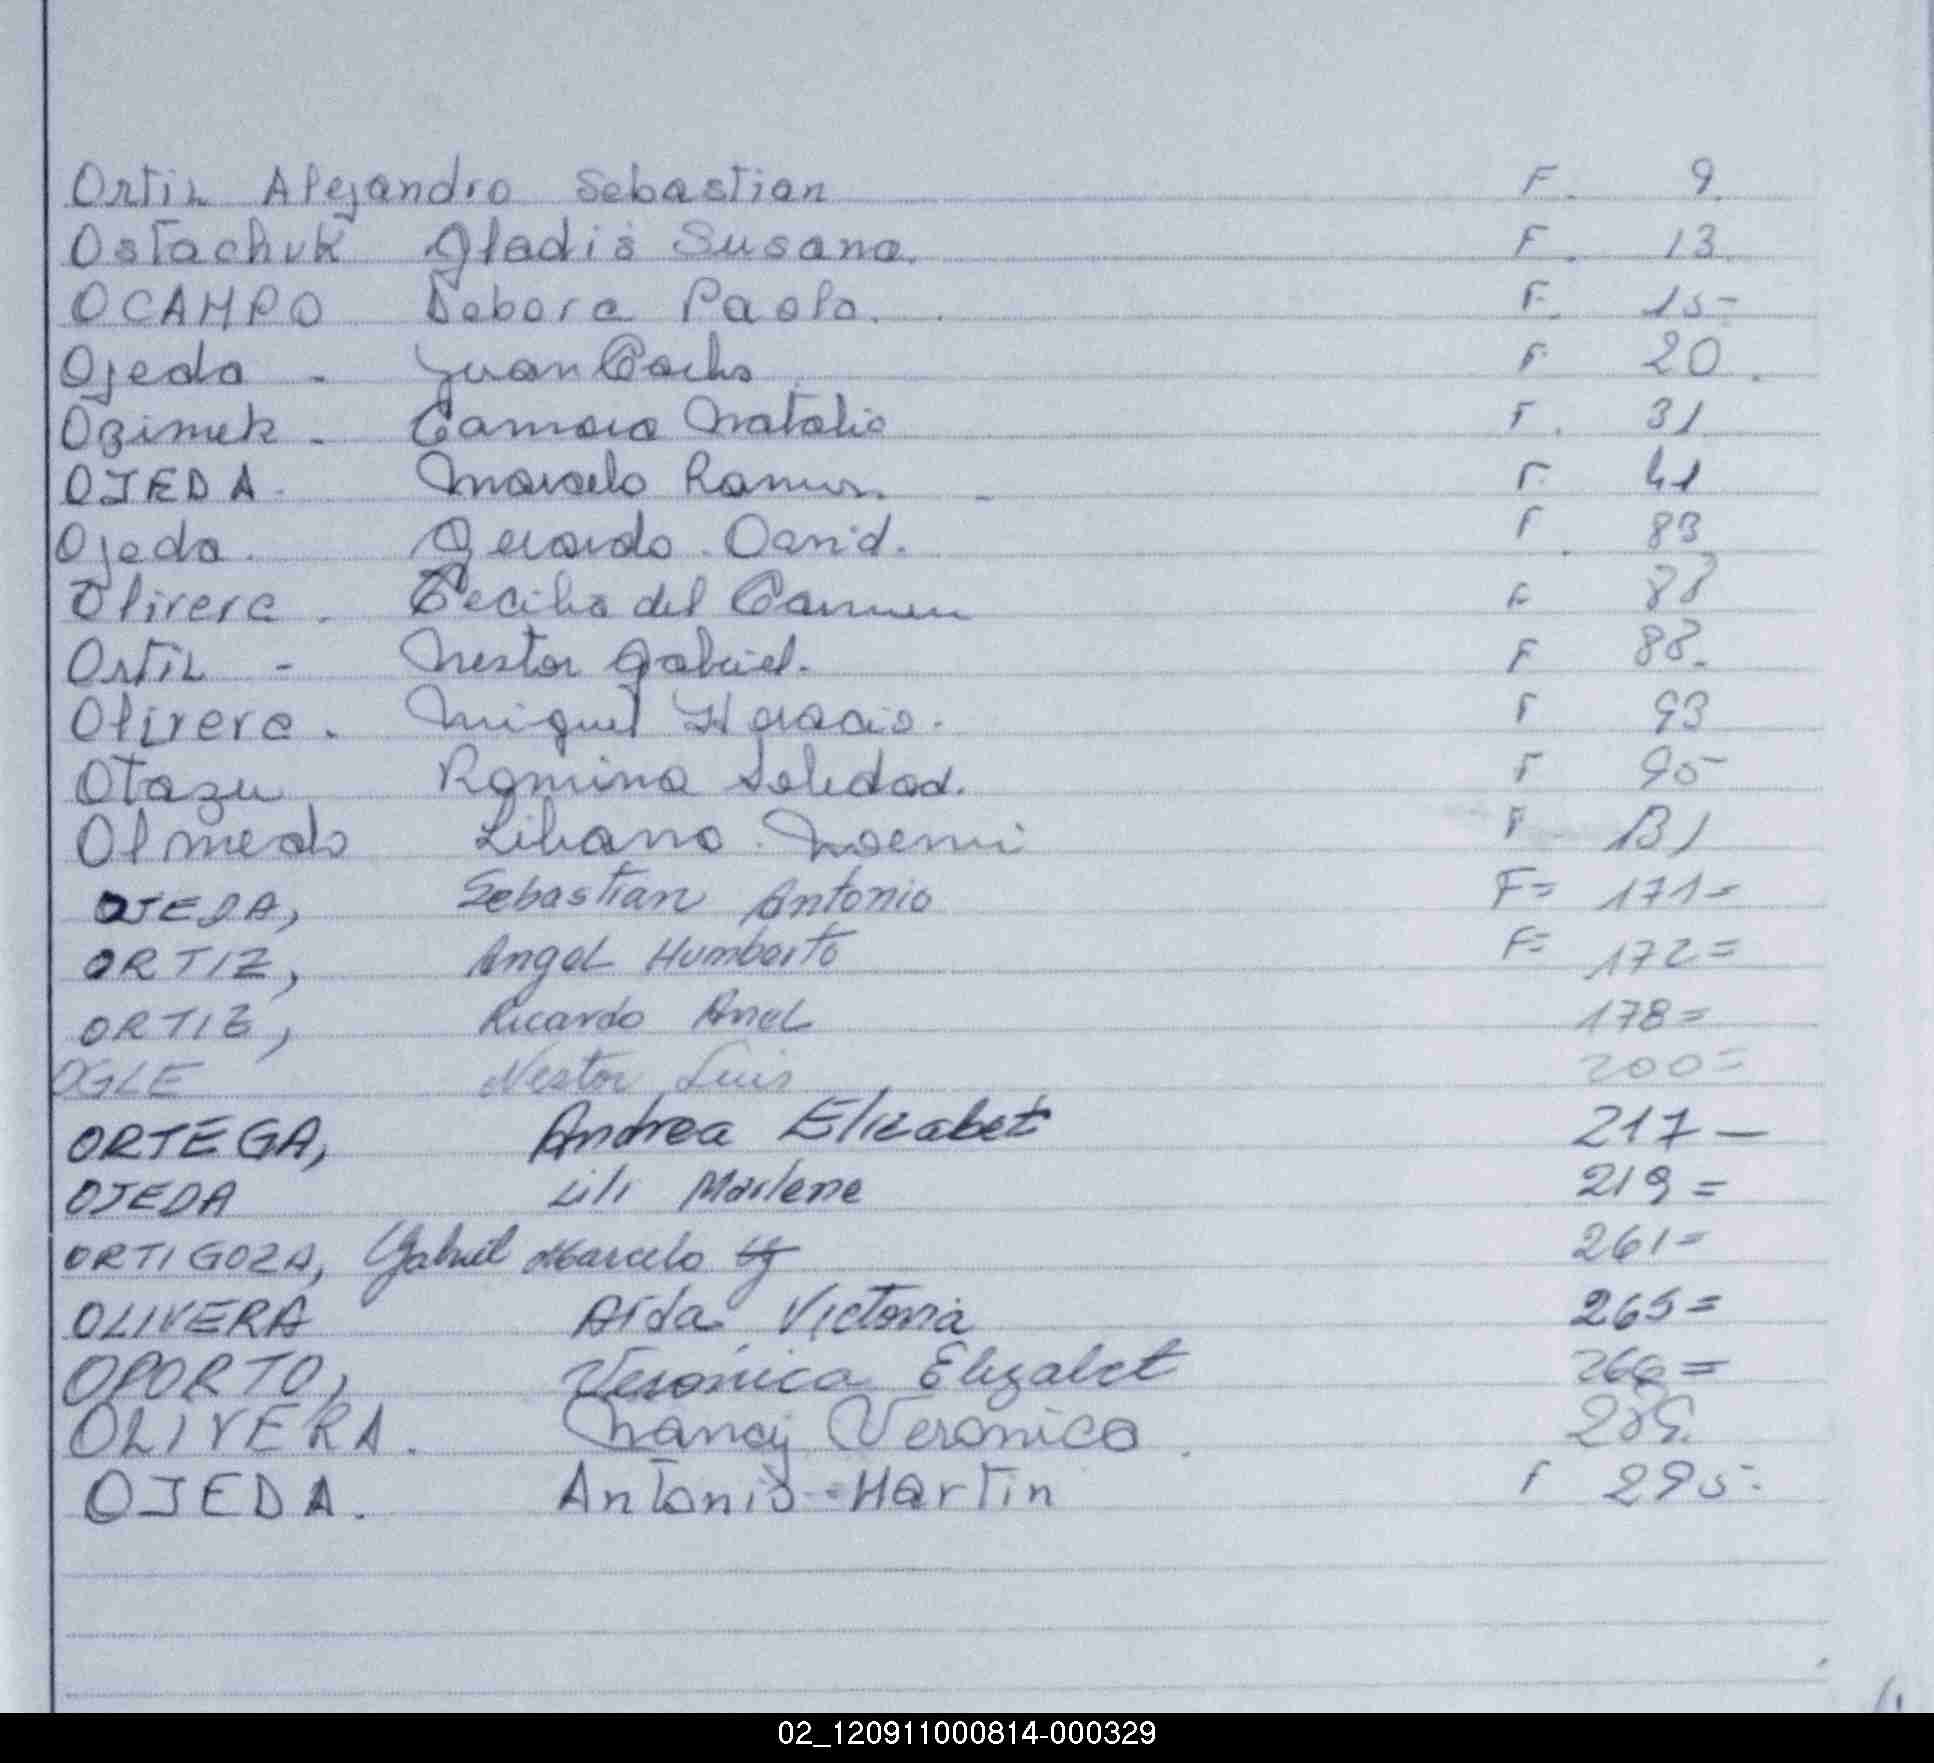 Ortiz Alejandro Sebastian F. 9
Ostachuk Gladis Susana. F. 13
OCAMPO Debora Paola. F. 15-
Ojeda - Juan Carlos F 20.
Ozimek - Tamara Natalia F. 31
OJEDA. Marcelo Ramon. F. 41
Ojeda. Gerardo David. F. 83
Olivera. Cecilia del Carmen F 88
Ortiz - Nestor Gabriel. F 88.
Olivera. Miguel Horacio. F 93
Otazu Romina Soledad. F 95
Olmedo Liliana Noemi F 131
OJEDA, Sebastian Antonio F= 171=
ORTIZ, Angel Humberto F= 172=
ORTIZ, Ricardo Ariel 178=
OGLE Nestor Luis 200=
ORTEGA, Andrea Elizabet 217—
OJEDA Lili Marlene 219=
ORTIGOZA, Gabriel Marcelo 261=
OLIVERA Aída Victoria 265=
OPORTO, Verónica Elizabet 266=
OLIVERA. Nancy Veronica.
OJEDA. Antonio Martin F 295-
02_120911000814-000329